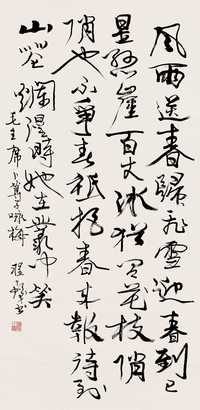 風雨送春歸飛雪迎春到已
是懸崖百丈冰猶有花枝俏
俏也不爭春祇把春來報待到
山花爛漫時她在叢中笑
毛主席卜算子咏梅 書